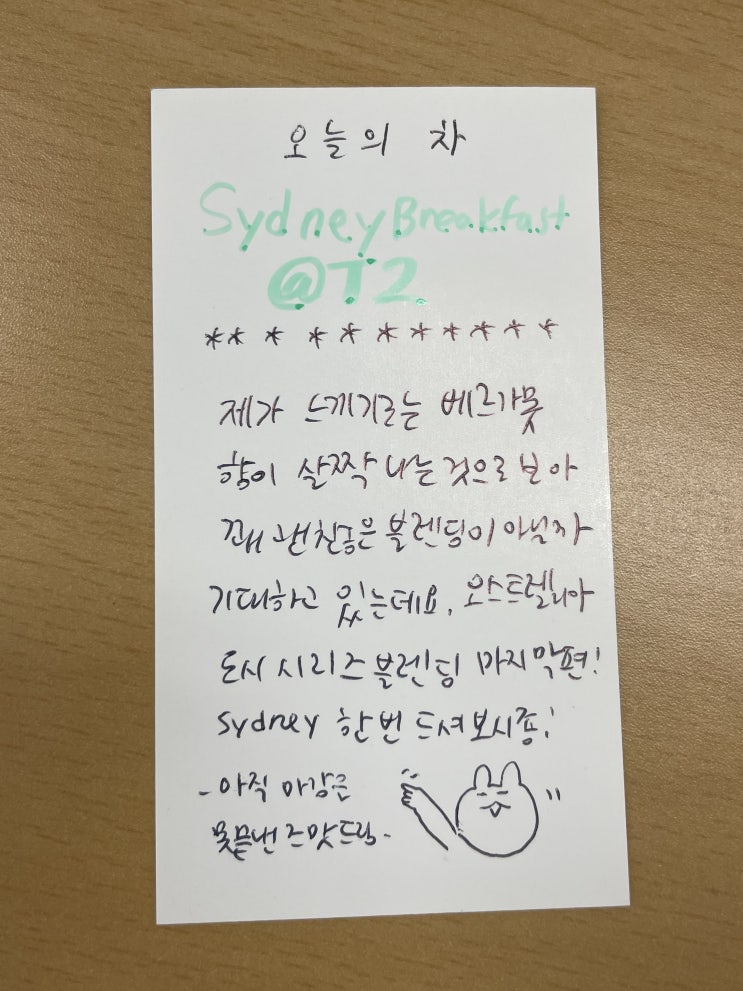 오늘의 차
Sydney Breakfast
@T2
** * * * * * * * * *
제가 느끼기로는 베르가못
향이 살짝 나는 것으로 보아
꽤 괜찮은 블렌딩이 아닐까
기대하고 있는데요, 오스트렐리아
도시 시리즈 블렌딩 마지막편!
Sydney 한번 드셔보시죵!
- 아직 마감은
못끝낸 드림-